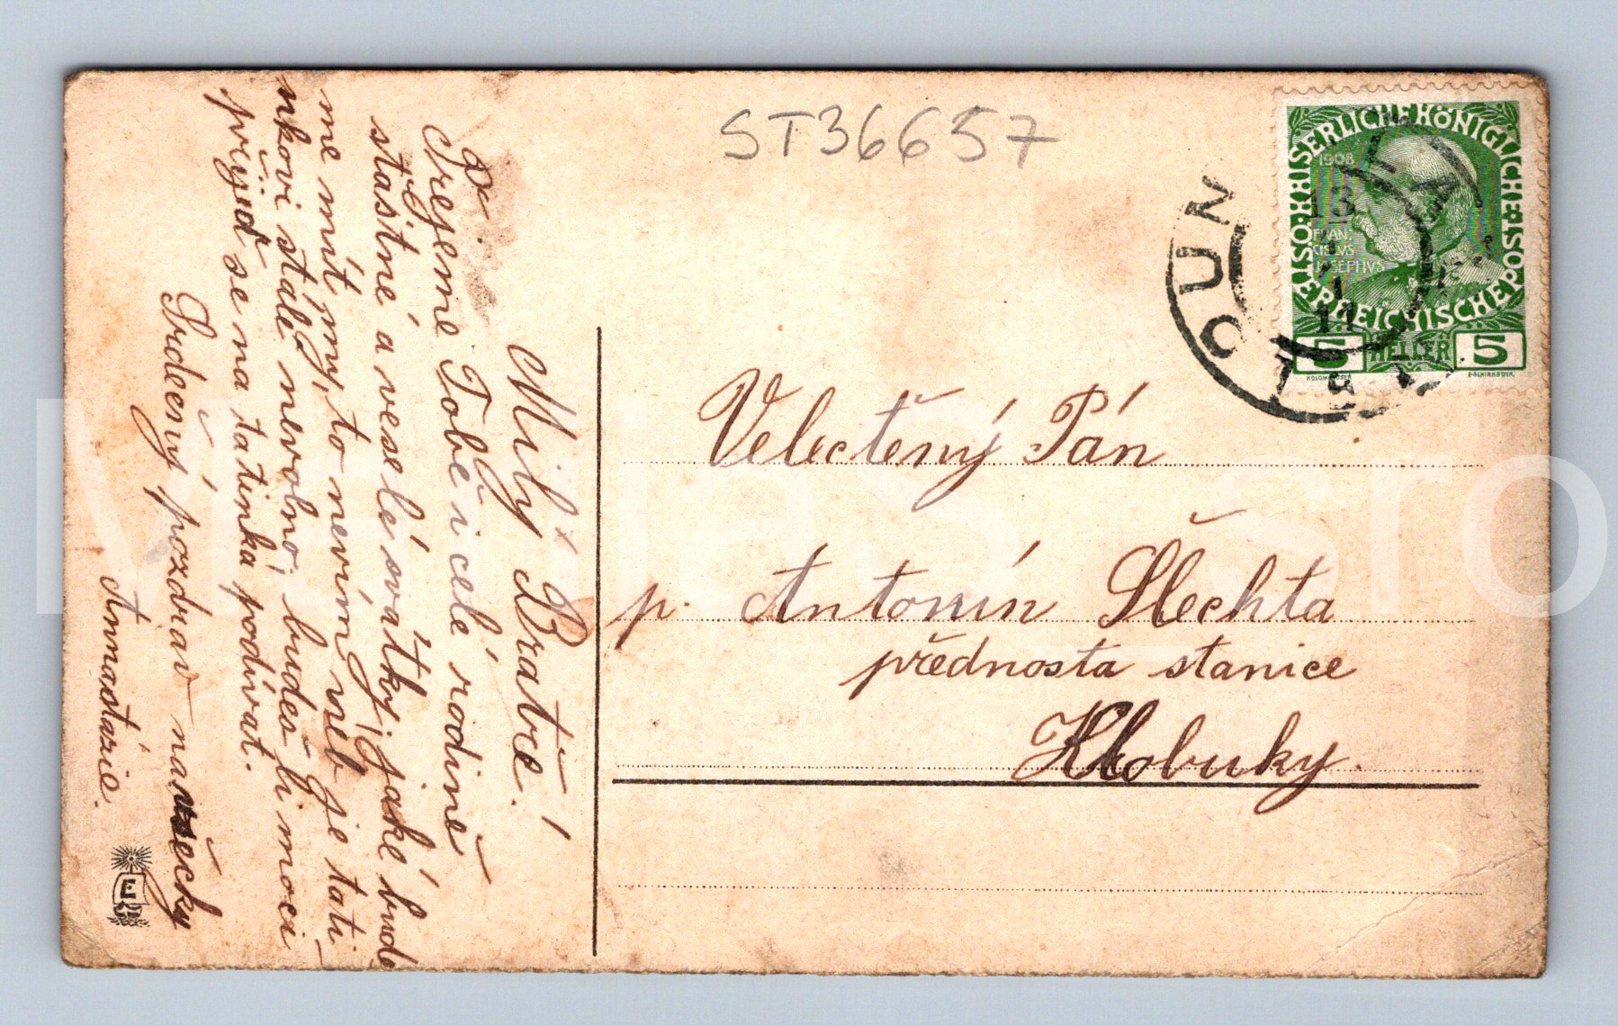 ST36657
KAISERLICHE KÖNIGLICHE ÖSTERREICHISCHE POST
1908
FRAN
CISCVS
IOSEPHVS
5 HELLER 5
LAUN
LOUNY
13
11
Velectěný Pán
p. Antonín Šlechta
přednosta stanice
Klobuky.
Milý Bratře!
Přejeme Tobě i celé rodině
šťastné a veselé svátky, jaké bude
me mít my, to nevím neb je tati
nkovi stále nevolno; budeš-li moci
přijeď se na tatínka podívat.
Srdečný pozdrav na všecky
Annastazie.